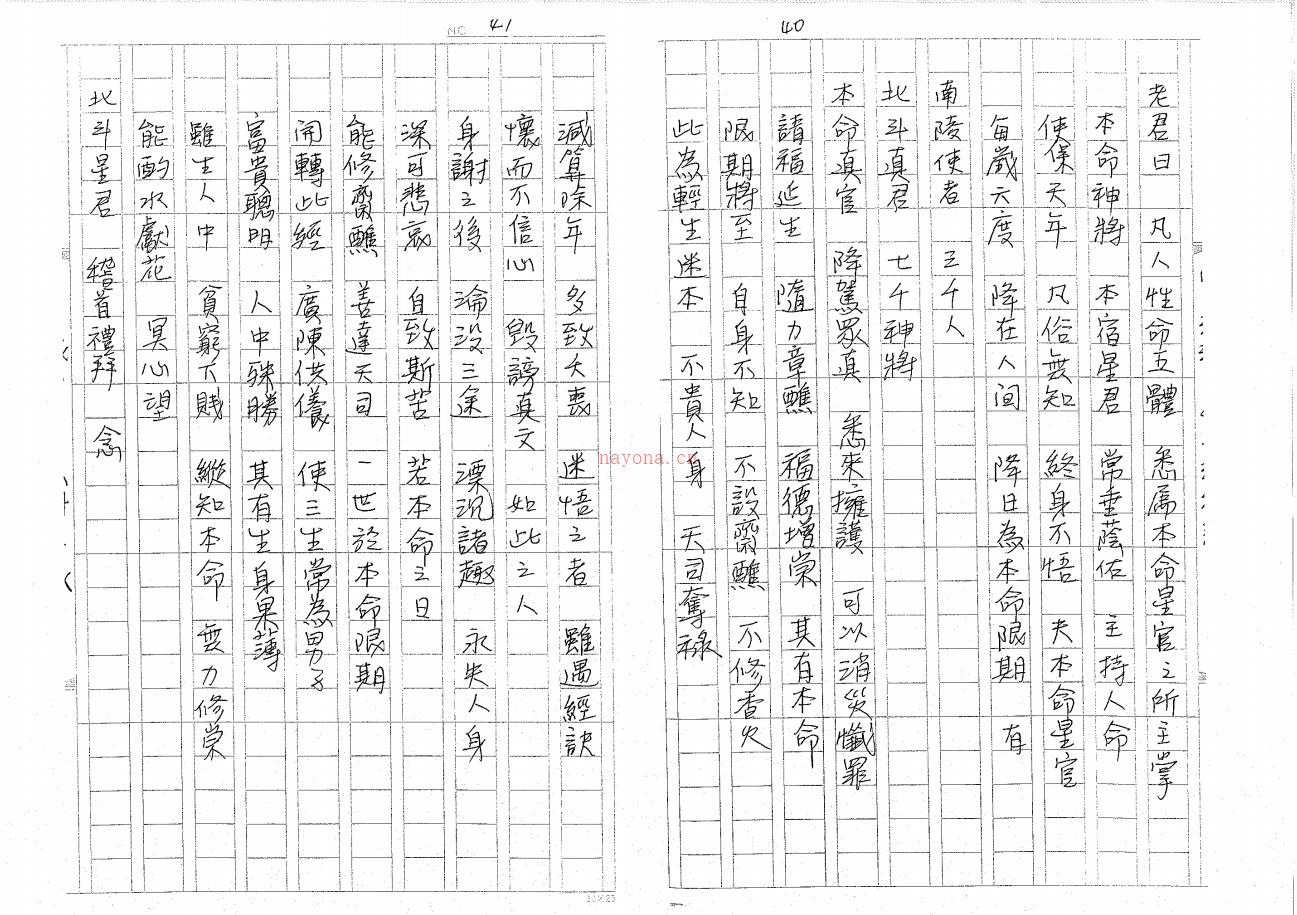 40
老君曰 凡人性命五體 悉屬本命星官之所主掌
本命神將 本宿星君 常垂蔭佑 主持人命
使保天年 凡俗無知 終身不悟 夫本命星官
每歲六度 降在人間 降日為本命限期 有
南陵使者 三千人
北斗真君 七千神將
本命真官 降駕眾真 悉來擁護 可以消災懺罪
請福延生 隨力章醮 福德增崇 其有本命
限期將至 自身不知 不設齋醮 不修香火
此為輕生迷本 不貴人身 天司奪祿
NO. 41
減算除年 多致夭喪 迷悟之者 雖遇經訣
懷而不信心 毀謗真文 如此之人
身謝之後 淪沒三途 漂沉諸趣 永失人身
深可悲哀 自致斯苦 若本命之日
能修齋醮 善達天司 一世於本命限期
開轉此經 廣陳供儀 使三生常為男子
富貴聰明 人中殊勝 其有生身果薄
雖生人中 貧窮下賤 縱知本命 無力修崇
能酌水獻花 冥心望
北斗星君 稽首禮拜 念
nayona.cn